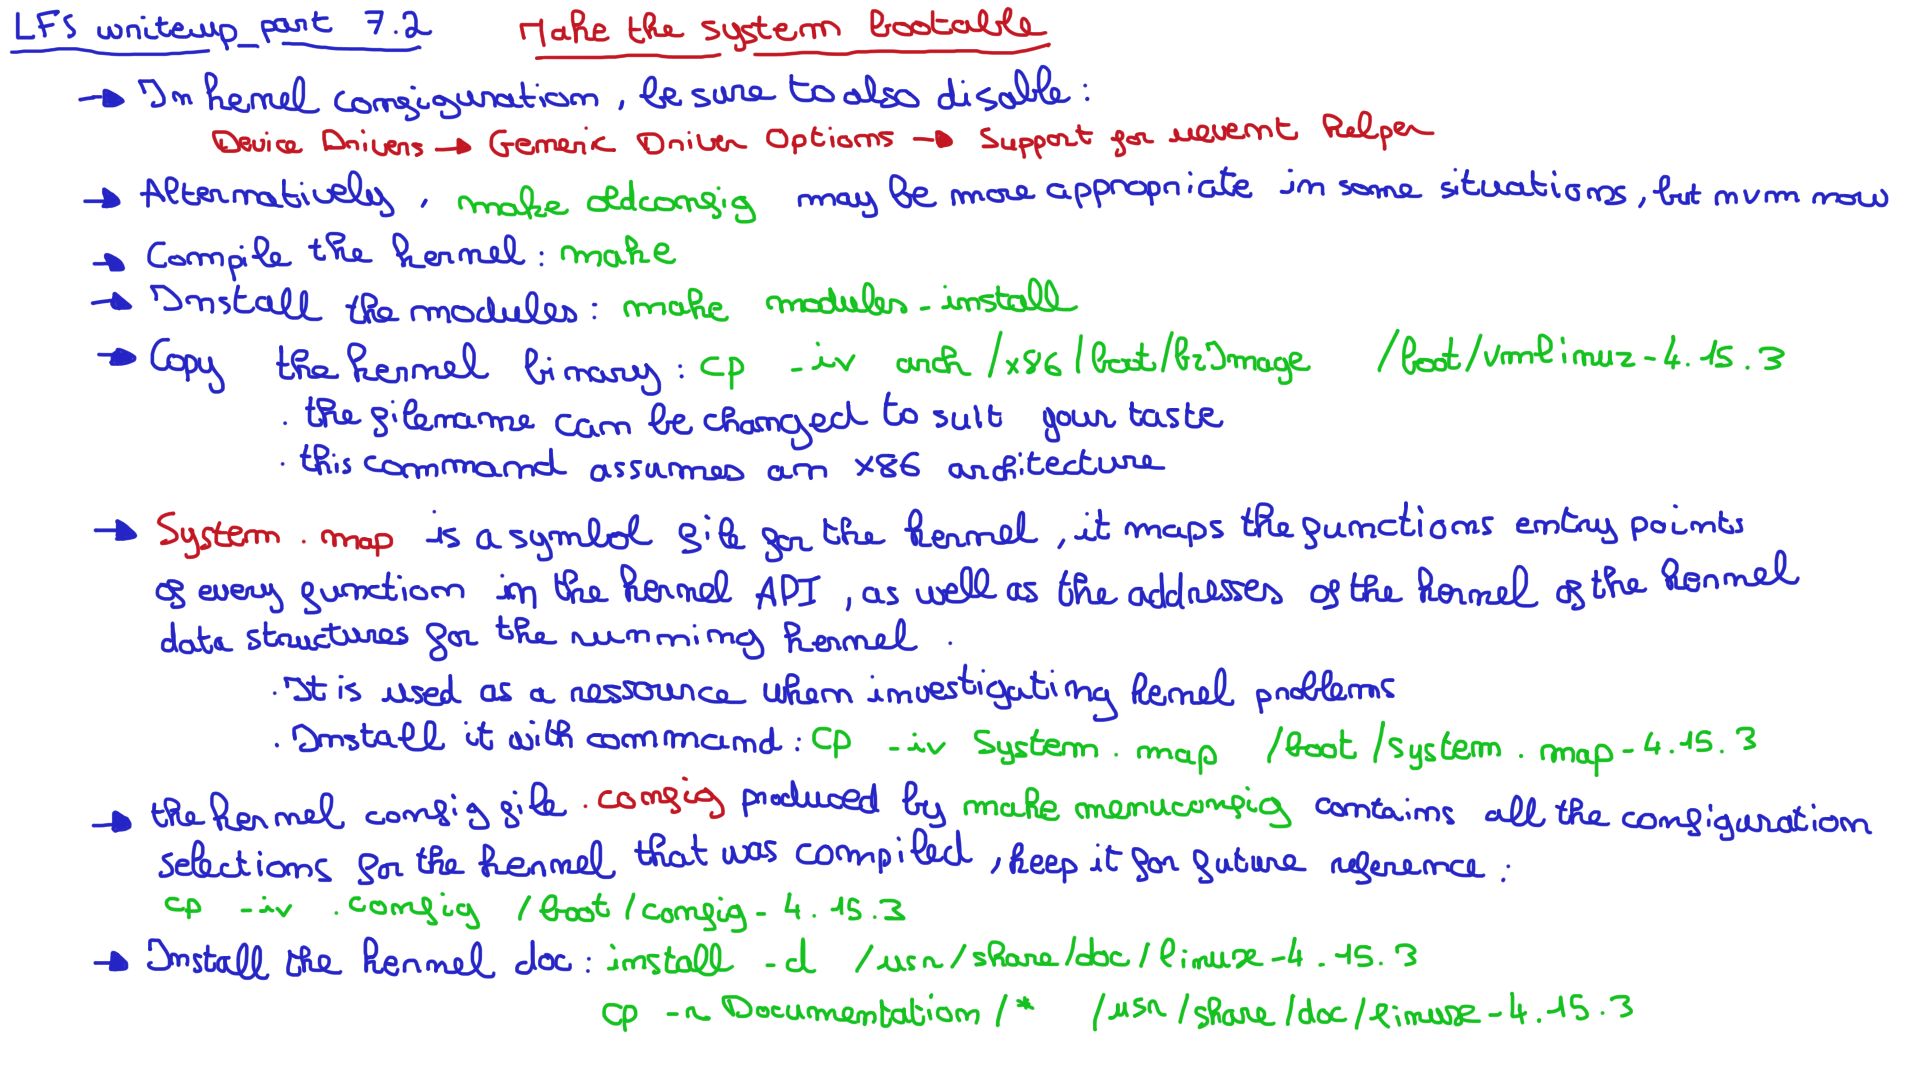 LFS writeup_part 7.2 Make the system bootable
→ In kernel configuration, be sure to also disable :
Device Drivers → Generic Driver Options → Support for uevent helper
→ Alternatively, make oldconfig may be more appropriate in some situations, but nvm now
→ Compile the kernel : make
→ Install the modules : make modules_install
→ Copy the kernel binary : cp -iv arch/x86/boot/bzImage /boot/vmlinuz-4.15.3
. the filename can be changed to suit your taste
. this command assumes an x86 architecture
→ System.map is a symbol file for the kernel, it maps the functions entry points
of every function in the kernel API, as well as the addresses of the kernel of the kernel
data structures for the running kernel.
. It is used as a ressource when investigating kernel problems
. Install it with command : cp -iv System.map /boot/system.map-4.15.3
→ the kernel config file .config produced by make menuconfig contains all the configuration
selections for the kernel that was compiled, keep it for future reference :
cp -iv .config /boot/config-4.15.3
→ Install the kernel doc : install -d /usr/share/doc/linux-4.15.3
cp -r Documentation/* /usr/share/doc/linux-4.15.3